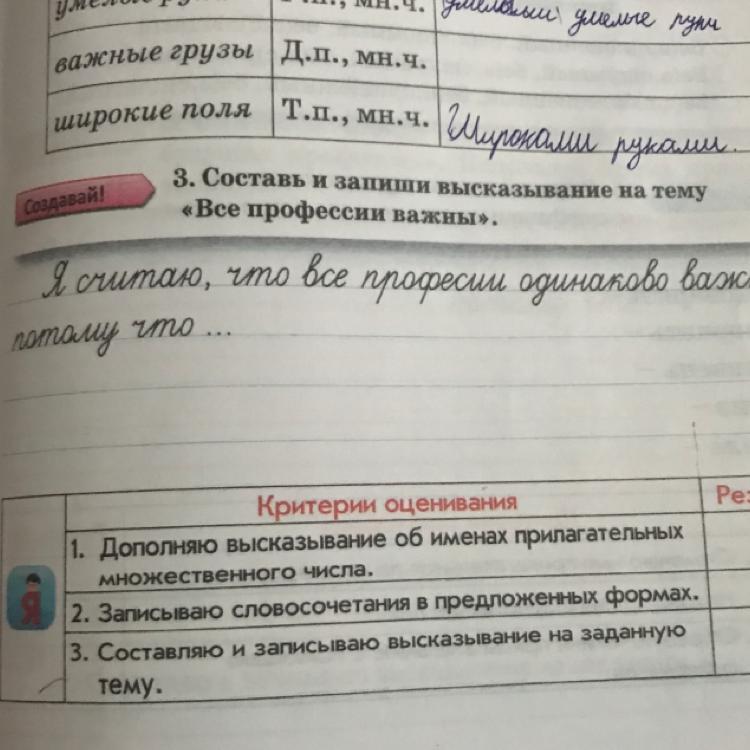 умелые ру
Т.п., мн.ч.
умелые руки
важные грузы
Д.п., мн.ч.
широкие поля
Т.п., мн.ч.
Широками руками.
Создавай!
3. Составь и запиши высказывание на тему
«Все профессии важны».
Я считаю, что все професии одинаково важ
потому что ...
Критерии оценивания
Рез
1. Дополняю высказывание об именах прилагательных
множественного числа.
2. Записываю словосочетания в предложенных формах.
3. Составляю и записываю высказывание на заданную
тему.
Я